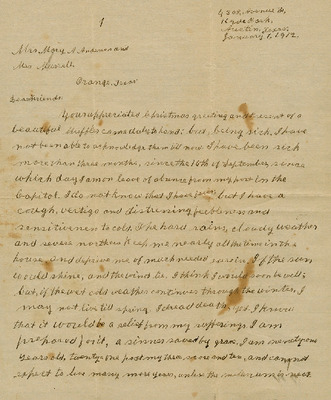 1
Avenue
Hyde Park,
Austin, Texas.
January 1, 1912.
Mrs. Mary A. Anderson and
Mrs.
Orange, Texas
Dear Friends:
Your appreciated Christmas greeting and
beautiful muffler came duly to hand: but, being sick, I have
not been able to acknowledge them till now. I have been sick
more than three months, since the 16th of September, since
which day I am on leave of absence from my post in the
Capitol. I do not know that I have fever, but I have a
cough, vertigo and distressing feebleness and
sensitiveness to cold. The hard rains, cloudy weather
and severe northers keep me nearly all the time in the
house, and deprive me of much needed exercise. If the sun
would shine, and the wind lie, I think I would soon be well;
but, if the wet cold weather continues through the winter, I
may not live till spring. I dread death, yet I know
that it would be a relief from my sufferings. I am
prepared for it, a sinner saved by grace, I am ninety one
years old, twenty one past my three score and ten, and cannot
expect to live many more years, under the most